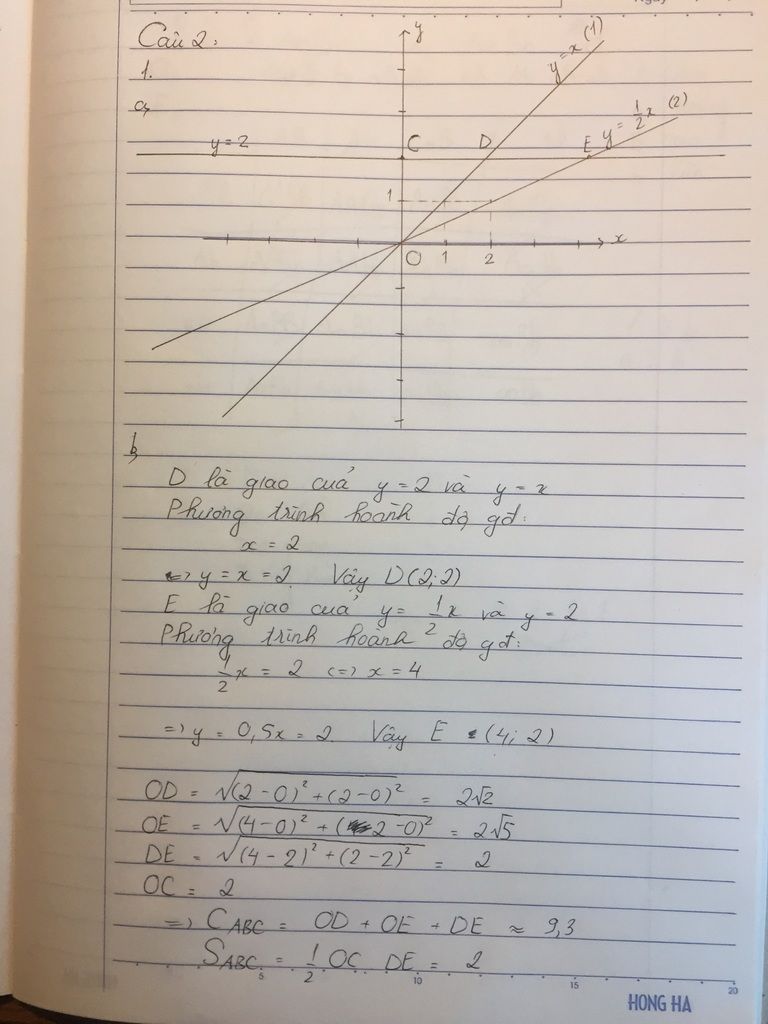 Câu 2:
y
1.
y=x (1)
a,
y=2
C
D
E
y=1/2x (2)
1
x
O
1
2
b,
D là giao cuả y=2 và y=x
Phương trình hoành độ gđ:
x = 2
<=> y = x = 2. Vậy D(2;2)
E là giao cuả y= 1/2x và y=2
Phương trình hoành độ gđ:
1/2x = 2 <=> x = 4
=> y = 0,5x = 2. Vậy E (4; 2)
OD = √(2-0)² + (2-0)² = 2√2
OE = √(4-0)² + (2-0)² = 2√5
DE = √(4-2)² + (2-2)² = 2
OC = 2
=> C_ABC = OD + OE + DE ≈ 9,3
S_ABC = 1/2 OC DE = 2
5 10 15 20
HONG HA